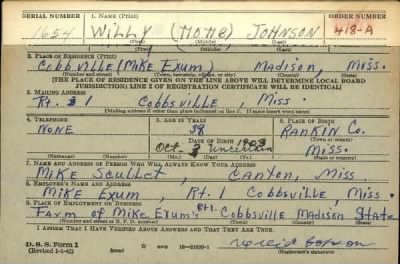 SERIAL NUMBER 1. NAME (Print) ORDER NUMBER
1654 Willy (None) Johnson 418-A
(First) (Middle) (Last)
2. PLACE OF RESIDENCE (Print)
Cobbville (Mike Exum) Madison, Miss.
(Number and street) (Town, township, village, or city) (County) (State)
[THE PLACE OF RESIDENCE GIVEN ON THE LINE ABOVE WILL DETERMINE LOCAL BOARD
JURISDICTION; LINE 2 OF REGISTRATION CERTIFICATE WILL BE IDENTICAL]
3. MAILING ADDRESS
Rt. 1 Cobbsville, Miss.
(Mailing address if other than place indicated on line 2. If same insert word same)
4. TELEPHONE 5. AGE IN YEARS 6. PLACE OF BIRTH
None 38 Rankin Co.
DATE OF BIRTH (Town or county)
Oct- 1903 uncertain Miss.
(Exchange) (Number) (Mo.) (Day) (Yr.) (State or country)
7. NAME AND ADDRESS OF PERSON WHO WILL ALWAYS KNOW YOUR ADDRESS
Mike Scullet Canton, Miss
8. EMPLOYER'S NAME AND ADDRESS
Mike Exum, Rt. 1 Cobbsville, Miss.
9. PLACE OF EMPLOYMENT OR BUSINESS
Farm of Mike Exum's Rt 1. Cobbsville Madison State
(Number and street or R. F. D. number) (Town) (County) (State)
I AFFIRM THAT I HAVE VERIFIED ABOVE ANSWERS AND THAT THEY ARE TRUE.
D. S. S. Form 1
(Revised 1-1-42) (Registrant's signature)